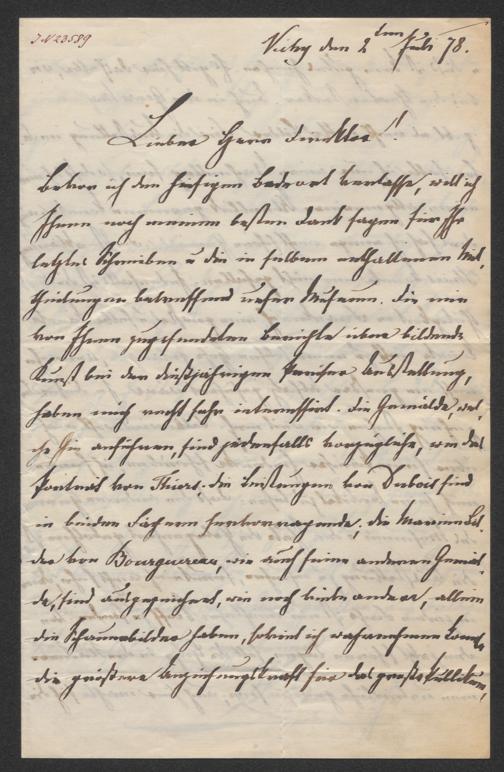 J N 23589
Vichy den 2ten Juli 78.
Lieber Herr Direktor!
Bevor ich den hiesigen Badeort verlasse, will ich
Ihnen noch meinen besten Dank sagen für Ihr
letztes Schreiben u die in selbem enthaltenen Mit-
theilungen betreffend unser Museum. Die mir
von Ihnen zugesendeten Berichte über bildende
Kunst bei der diesjährigen Pariser Ausstellung,
haben mich recht sehr interessirt. Die Gemälde, wel-
che Sie anführen, sind jedenfalls vorzügliche, wie das
Portrait von Thiers; die Leistungen von Dubois sind
in beiden Fächern hervorragende; die Marienbil-
der von Bourguereau, wie auch seine anderen Gemäl-
de, sind ausgezeichnet, wie noch viele andere, allein
die Schauerbilder haben, soviel ich wahrnehmen konnte,
die größere Anziehungskraft für das große Publikum,